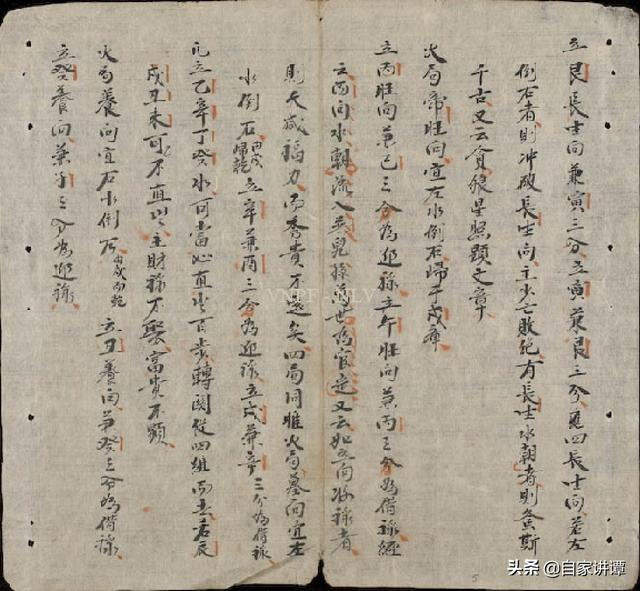 立艮長生向兼寅三分立寅兼艮三分爲四長生向若左
倒右者則冲破長生向主少亡敗絶有長生水朝者則螽斯
千古又云貪狼星照顯文章
火局帝旺向宜左水倒右歸于戌庫
立丙旺向兼巳三分為迎祿立午旺向兼丙三分為借祿經
云丙向水朝流入 世為官定又云如 向 祿者
則大減福力而秀貴不 矣四局同推火局墓向宜左
水倒右丙戌歸乾立辛兼酉三分為迎祿立戌兼辛三分為借祿
凡立乙辛丁癸水可當心直 百步轉関從四維而去若辰
戌丑未可不直 主財祿不聚富貴不顯
火局養向宜右水倒 丙戌向乾立丑養向兼癸三分為借祿
立癸養向兼子三分為迎祿
VNPF-NLV
头条 @自家讲谭